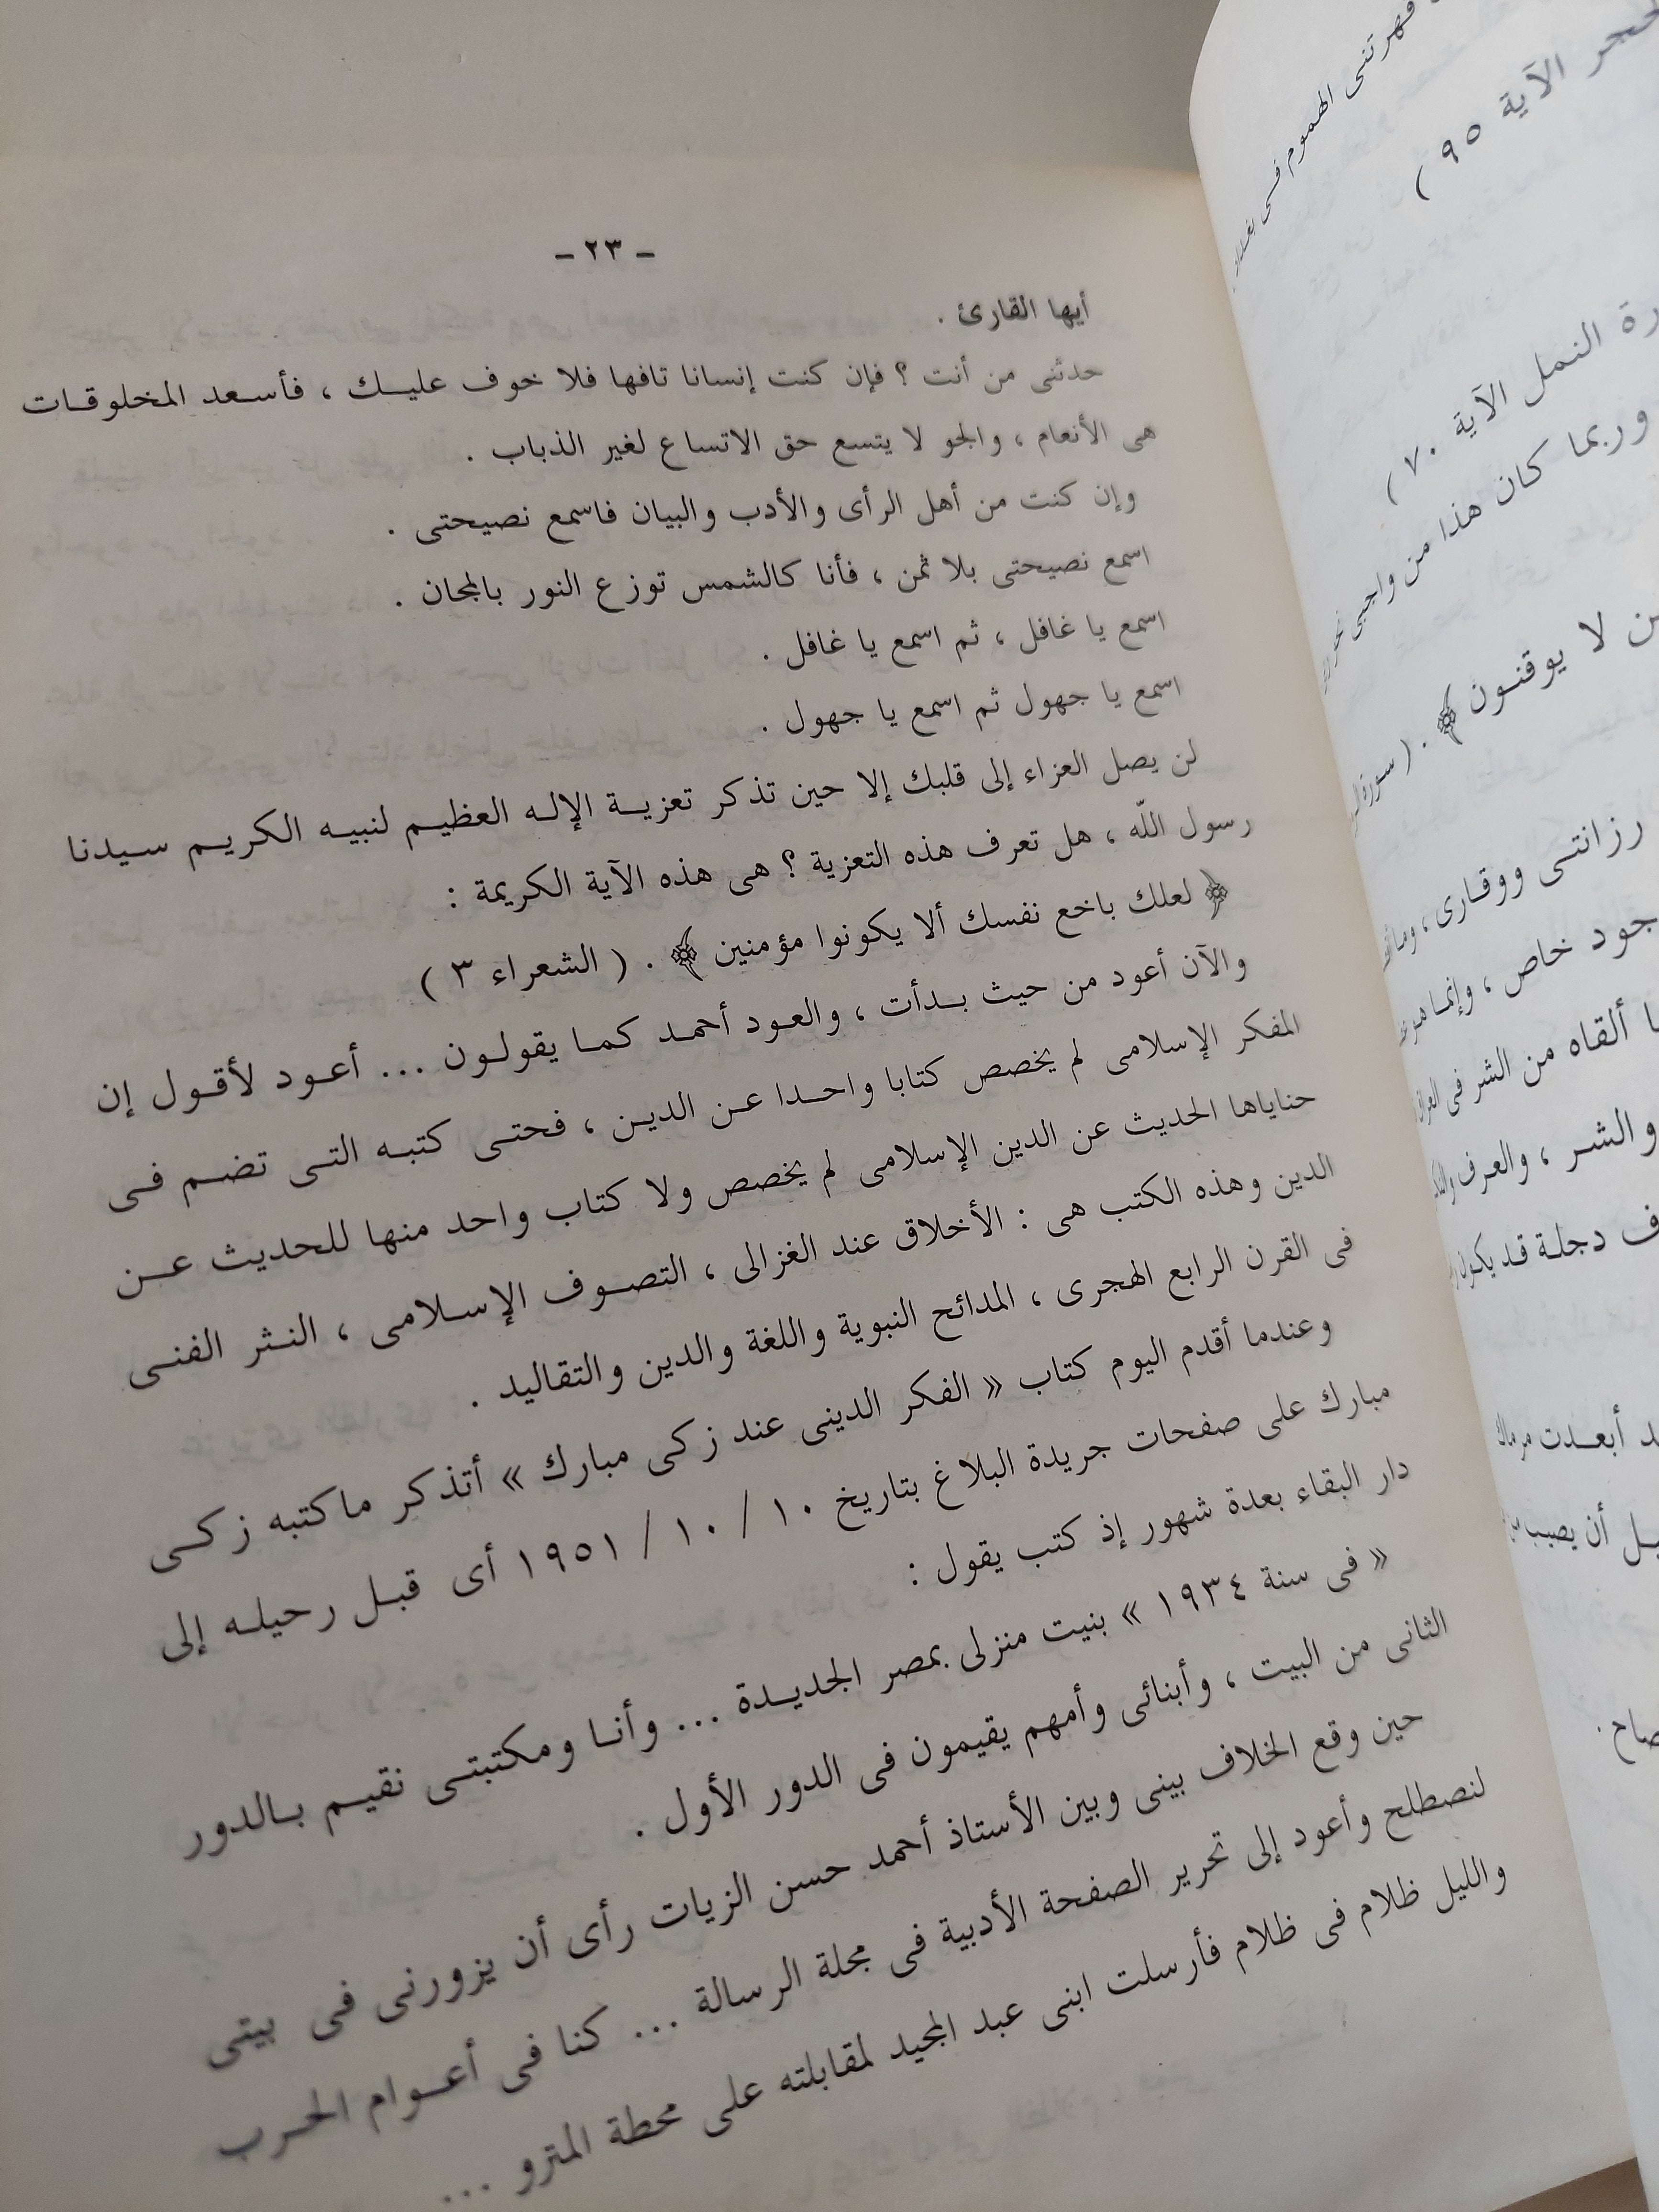 ـ ٢٣ ـ
أيها القارئ .
حدثنى من أنت ؟ فإن كنت إنسانا تافها فلا خوف عليـك ، فأسـعد المخلوقـات
هى الأنعام ، والجو لا يتسع حق الاتساع لغير الذباب .
وإن كنت من أهل الرأى والأدب والبيان فاسمع نصيحتى .
اسمع نصيحتى بلا ثمن ، فأنا كالشمس توزع النور بالمجان .
اسمع يا غافل ، ثم اسمع يا غافل .
اسمع يا جهول ثم اسمع يا جهول .
لن يصل العزاء إلى قلبك إلا حين تذكر تعزيـة الإلـه العظيـم لنبيـه الكريـم سـيدنا
رسول اللّه ، هل تعرف هذه التعزية ؟ هى هذه الآية الكريمة :
﴿ لعلك باخع نفسك ألا يكونوا مؤمنين ﴾ . ( الشعراء ٣ )
والآن أعود من حيث بـدأت ، والعـود أحمـد كمـا يقولـون ... أعـود لأقـول إن
المفكر الإسلامى لم يخصص كتابا واحـدا عـن الديـن ، فحتـى كتبـه التـى تضـم فـى
حناياها الحديث عن الدين الإسلامى لم يخصص ولا كتاب واحد منها للحديث عـن
الدين وهذه الكتب هى : الأخلاق عند الغزالى ، التصـوف الإسـلامى ، النـثر الفنـى
فى القرن الرابع الهجرى ، المدائح النبوية واللغة والدين والتقاليد .
وعندما أقدم اليوم كتاب « الفكر الدينى عند زكى مبارك » أتذكر ماكتبه زكـى
مبارك على صفحات جريدة البلاغ بتاريخ ١٠ / ١٠ / ١٩٥١ أى قبـل رحيلـه إلى
دار البقاء بعدة شهور إذ كتب يقول :
« فى سنة ١٩٣٤ » بنيت منزلى بمصر الجديـدة ... وأنـا ومكتبتـى نقيـم بـالدور
الثانى من البيت ، وأبنائى وأمهم يقيمون فى الدور الأول .
حين وقع الخلاف بينى وبين الأستاذ أحمد حسن الزيات رأى أن يزورنى فى بيتى
لنصطلح وأعود إلى تحرير الصفحة الأدبية فى مجلة الرسالة ... كنا فى أعـوام الحـرب
والليل ظلام فى ظلام فأرسلت ابنى عبد المجيد لمقابلته على محطة المترو ...
قهرتنى الهموم فـى
الآية ٩٥ )
النمل الآية ٧٠ )
وربما كان هذا من واجبى
لا يوقنـون ﴾ . ( سورة
رزانتـى ووقـارى ،
خاص ، وإنمـا هـو
ألقاه من الشر فى
والشـر ، والعـرف
دجلـة قـد يكـون
أبعـدت
أن يصيب